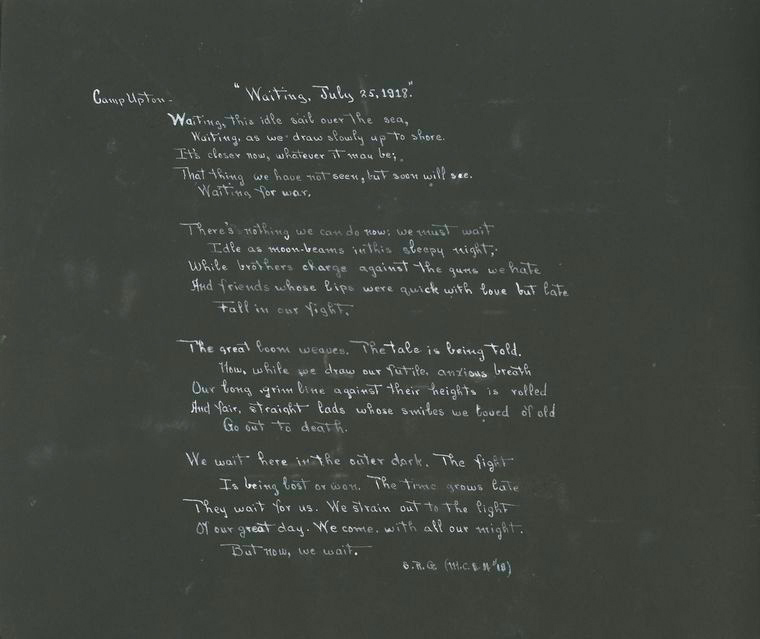 Camp Upton - "Waiting, July 25, 1918."
Waiting, this idle sail over the sea,
Waiting, as we draw slowly up to shore.
It's closer now, whatever it may be;
That thing we have not seen, but soon will see.
Waiting for war.
There's nothing we can do now; we must wait
Idle as moon-beams in this sleepy night;
While brothers charge against the guns we hate
And friends whose lips were quick with love but late
Fall in our fight.
The great loom weaves. The tale is being told.
Now, while we draw our futile, anxious breath
Our long grim line against their heights is rolled
And fair, straight lads whose smiles we loved of old
Go out to death.
We wait here in the outer dark. The fight
Is being lost or won. The time grows late
They wait for us. We strain out to the light
Of our great day. We come. with all our might.
But now, we wait.